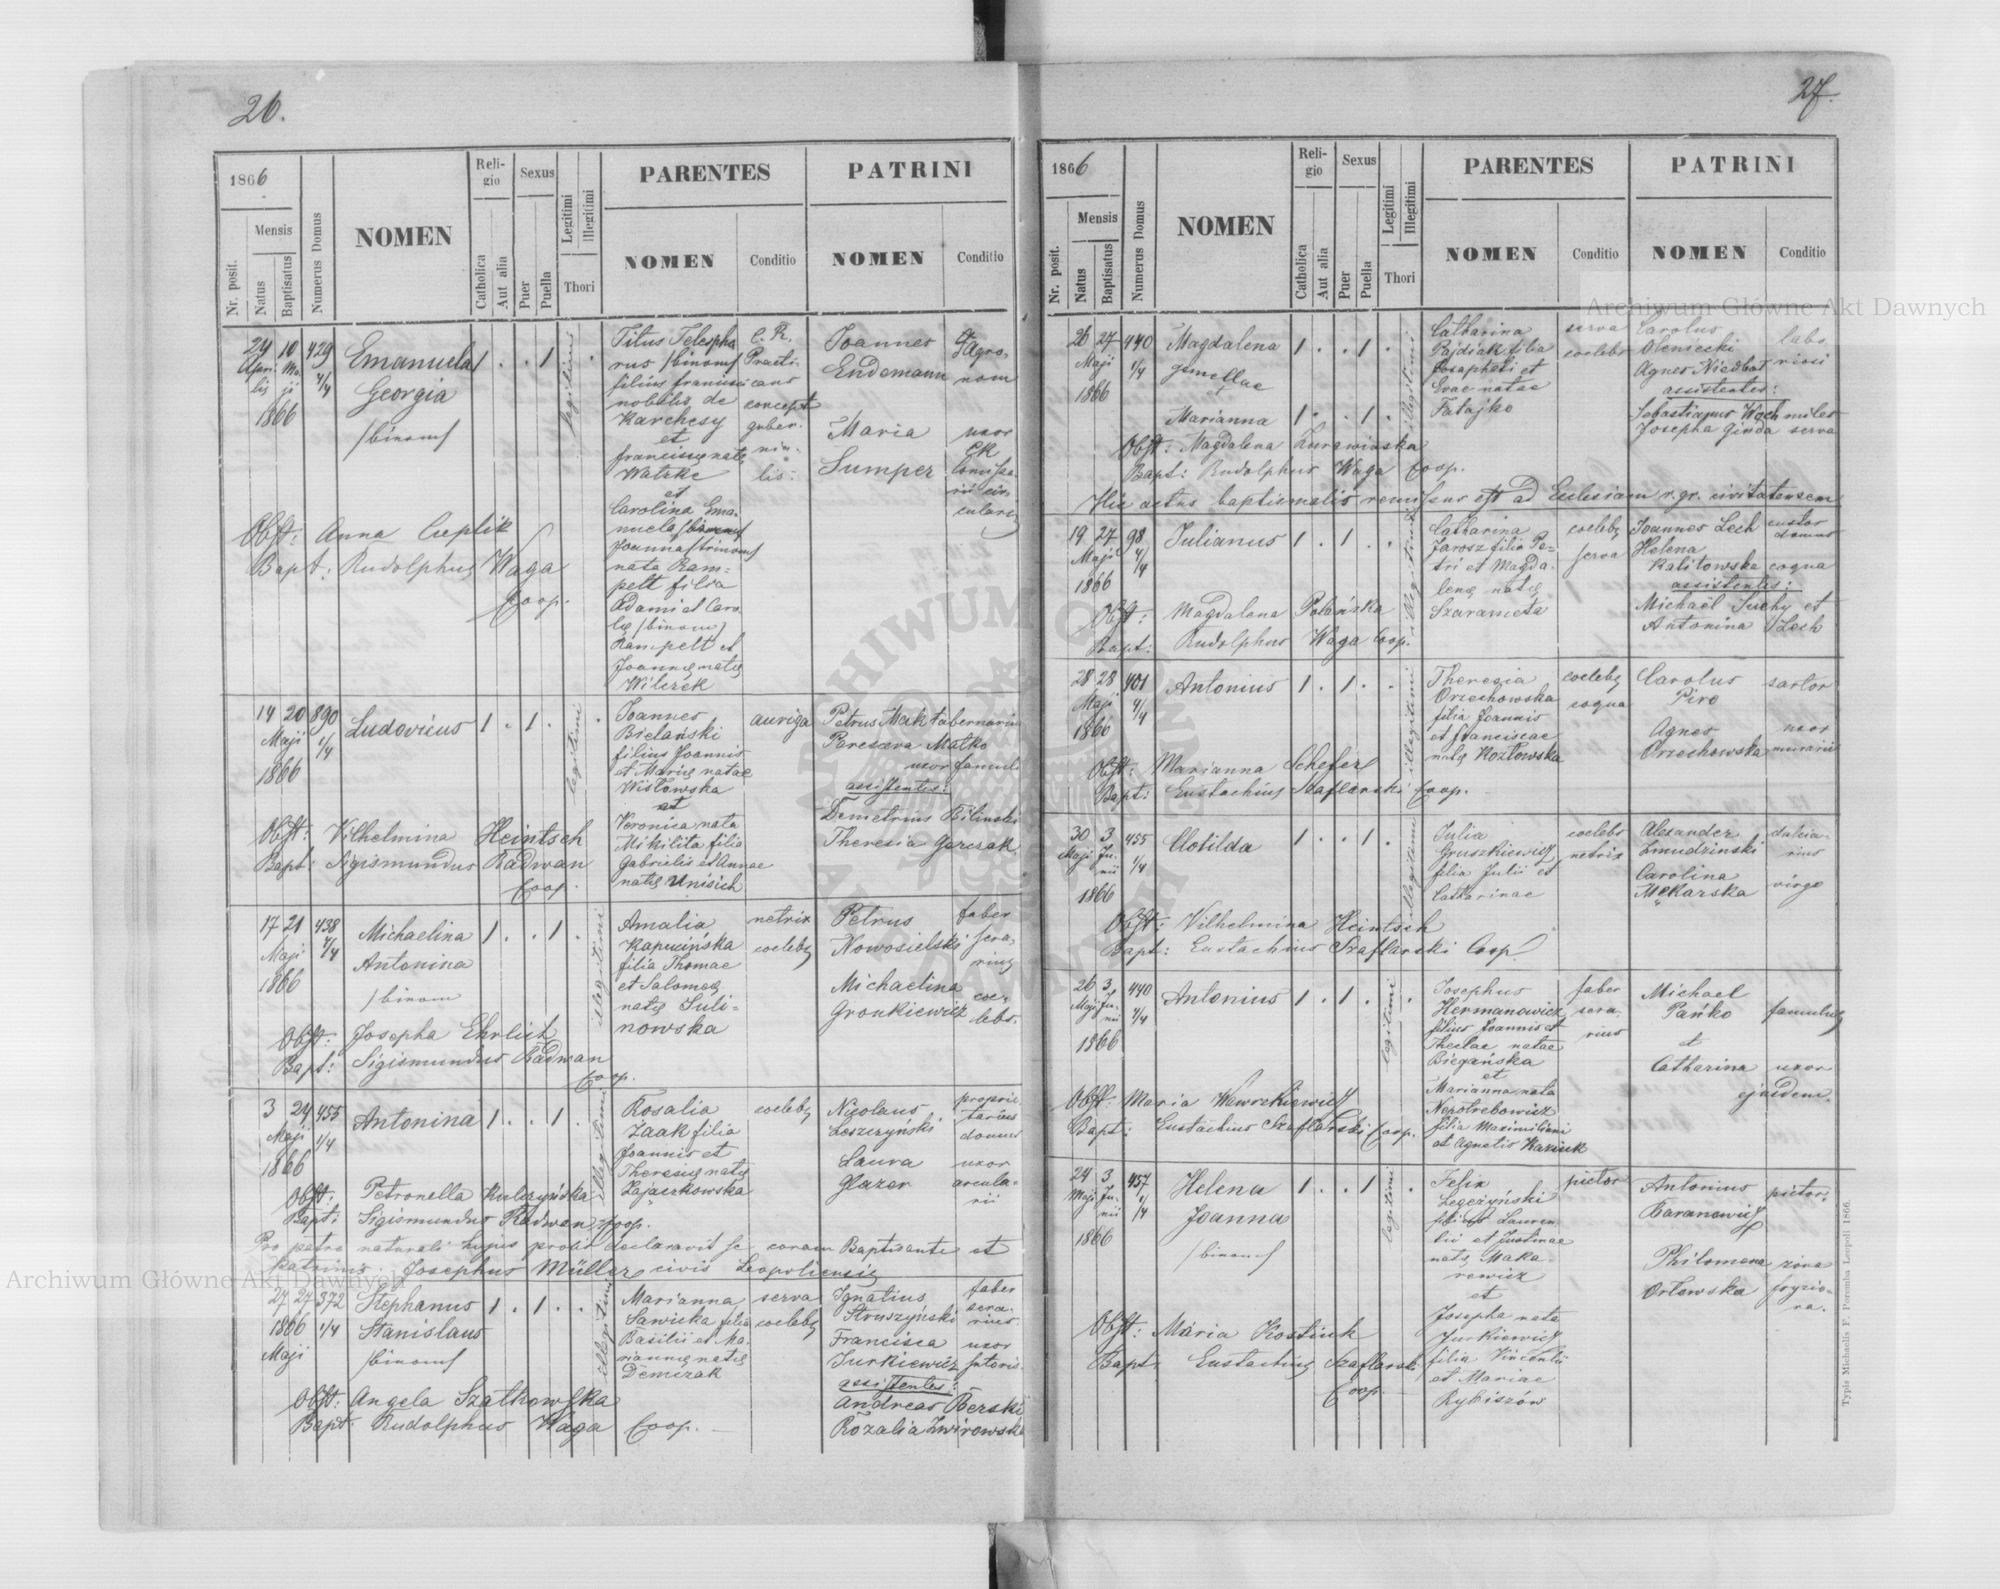 26.
1866
Mensis
Nr. posit.
Natus
Baptisatus
Numerus Domus
NOMEN
Religio
Catholica
Aut alia
Sexus
Puer
Puella
Legitimi
Illegitimi
Thori
PARENTES
NOMEN
Conditio
PATRINI
NOMEN
Conditio
24 10 429
Aprilis Maji 4/4
1866
Emanuela
Georgia
/binom/
1 . . 1 .
legitimi
Titus Telespho
rus /binom/
filius Francisci
nobilis de
Karchesy
et
Franciscę natę
Watzke
et
Carolina Ema
nuela /binom/
Joanna /trinom/
nata Ram=
pelt filia
Adami et Caro
lę /binom/
Rampelt et
Joannę natę
Wilczek
C. R.
Practi
cans
concept
guber.
nia-
lis.
Joannes
Endemann
Agro,
nom
Maria
Sumper
uxor
CK
Comissa
rii cir,
cularis
Obst: Anna Cieplik
Bapt: Rudolphus Waga
Coop.
14 20 890
Maji 1/4
1866
Ludovicus
1 . 1 .
legitimi
Joannes
Bielański
filius Joannis
et Marię natae
Wisłowska
et
Veronica nata
Mikilita filia
Gabrielis et Annae
natę Unisich
auriga
Petrus Mak tabernariu
Paresceva Matko
uxor famuli
assistentes:
Demetrius Bilinski
Theresia Garczak
Obst: Vilhelmina Heintsch
Bapt: Sigismundus Radwan
Coop.
17 21 438
Maji 4/4
1866
Michaelina
Antonina
/binom
1 . . 1 .
illegitimi
Amalia
Kapucińska
filia Thomae
et Salomeę
natę Suli-
nowska
netrix
coelebs
Petrus
Nowosielski
faber
sera,
rius
Michaelina
Gronkiewicz
coe-
lebs.
Obst: Josepha Ehrlich
Bapt: Sigismundus Radwan
Coop.
3 24 455
Maji 1/4
1866
Antonina
1 . . 1 .
illegitimi
Rosalia
Zaak filia
Joannis et
Theresię natę
Zajączkowska
coelebs
Nicolaus
Leszczyński
proprie
tarius
domus
Laura
Glazer
uxor
arcula-
rii
Obst: Petronella Kulczyńska
Bapt: Sigismundus Radwan Coop.
Pro patre naturali hujus prolis declaravit se coram Baptisante et
patrinis Josephus Müller civis Leopoliensis
27 27 372
1866 1/4
Maji
Stephanus
Stanislaus
/binom/
1 . 1 .
illegitimi
Marianna
Sawicka filia
Basilii et Ma,
riannę natę
Demczak
serva
coelebs
Ignatius
Struszyński
faber
sera.
rius.
Francisca
Jurkiewicz
uxor
sutoris
assistentes:
Andreas Berski
Rozalia Zwirowska
Obst: Angela Szatkowska
Bapt: Rudolphus Waga Coop.
27.
1866
Mensis
Nr. posit.
Natus
Baptisatus
Numerus Domus
NOMEN
Religio
Catholica
Aut alia
Sexus
Puer
Puella
Legitimi
Illegitimi
Thori
PARENTES
NOMEN
Conditio
PATRINI
NOMEN
Conditio
26 27 440
Maji 1/4
1866
Magdalena
gemellae
Marianna
1 . . 1 .
1 . . 1 .
illegitimi
Catharina
Pajdiak filia
Josaphati et
Evae natae
Fatajko
serva
coelebs
Carolus
Oleniecki
Agnes Niedbał
labo
riosi
assistentes:
Sebastianus Woch miles
Josepha Ginda serva
Obst: Magdalena Zurawinska
Bapt: Rudolphus Waga Coop.
Hic actus baptismalis remissus est ad Ecclesiam r. gr. civitatensem
19 27 98
Maji 4/4
1866
Julianus
1 . 1 . .
illegitimi
Catharina
Jarosz filia Pe-
tri et Magda-
lenę natę
Szarameta
coelebs
serva
Joannes Lech custos
domus
Helena
Kalitowska coqua
assistentes:
Michaël Suchy et
Antonina Lech
Obst: Magdalena Polańska
Bapt: Rudolphus Waga Coop.
28 28 401
Maji 4/4
1866
Antonius
1 . 1 . .
illegitimi
Theresia
Orzechowska
filia Joannis
et Franciscae
natę Kozłowska
coelebs
coqua
Carolus
Piro
sartor
Agnes
Orzechowska
uxor
murarii
Obst: Marianna Schefer
Bapt: Eustachius Szaflarski Coop.
30 3 455
Maji Junii 1/4
1866
Clotilda
1 . . 1 .
illegitimi
Julia
Gruszkiewicz
filia Julii et
Catharinae
coelebs
netrix
Alexander
Zmudzinski
dulcia-
rius
Carolina
Mękarska
virgo
Obst: Vilhelmina Heintsch
Bapt: Eustachius Szaflarski Coop.
26 3 440
Maji Junii 4/4
1866
Antonius
1 . 1 . .
legitimi
Josephus
Hermanowicz
filius Joannis et
Theclae natae
Biegańska
et
Marianna nata
Nepotrebowicz
filia Maximiliani
et Agnetis Kaziuk
faber
sera.
rius
Michael
Pańko
famulus
et
Catharina uxor
ejusdem.
Obst: Maria Wawrzkiewicz
Bapt: Eustachius Szaflarski Coop.
24 3 457
Maji Junii 1/4
1866
Helena
Joanna
/binom/
1 . . 1 .
legitimi
Felix
Łegeżyński
filius Lauren
tii et Justinae
natę Maka-
rewicz
et
Josepha nata
Jurkiewicz
filia Vincentii
et Mariae
Rybiszów
pictor
Antonius
Baranowicz
pictor.
Philomena
Orłowska
Obst: Maria Kostiuk
Bapt: Eustachius Szaflarski
Coop.
Typis Michaelis F. Poremba Leopoli 1866.
Archiwum Główne Akt Dawnych
Archiwum Główne Akt Dawnych